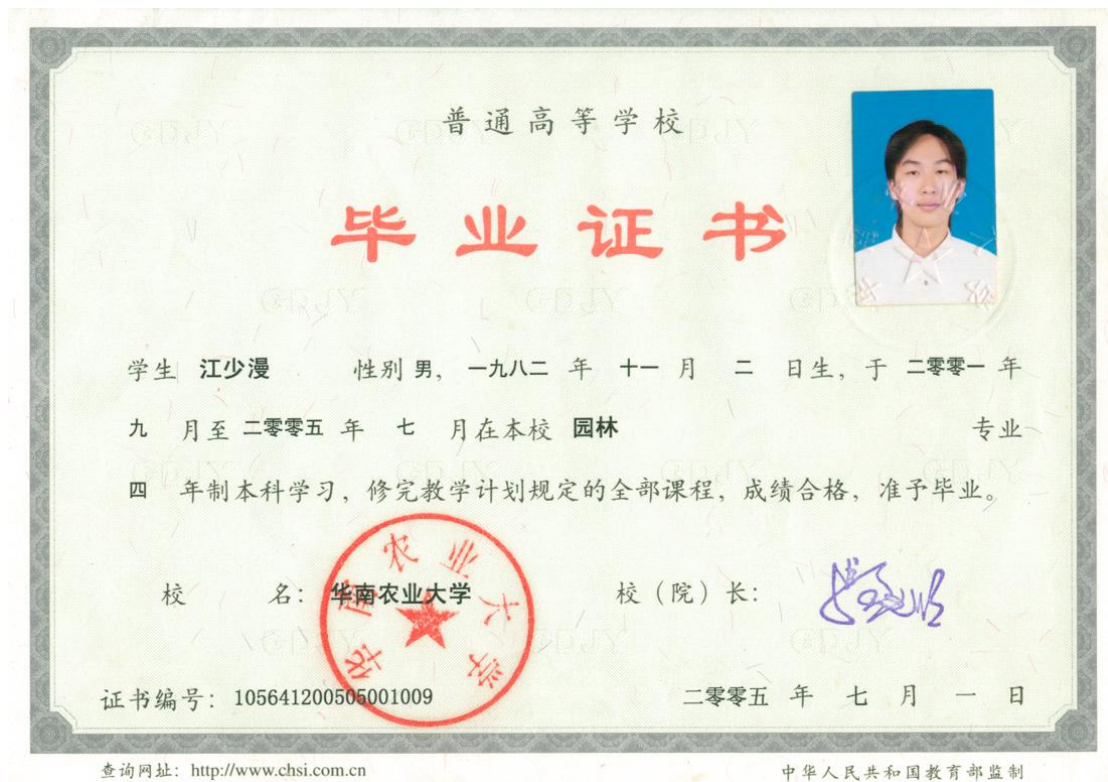 普通高等学校
毕业证书
学生 江少漫 性别 男， 一九八二 年 十一 月 二 日生，于 二零零一 年
九 月至 二零零五 年 七 月在本校 园林 专业
四 年制本科学习，修完教学计划规定的全部课程，成绩合格，准予毕业。
校 名： 华南农业大学 校（院）长：
华南农业大学
证书编号： 105641200505001009 二零零五 年 七 月 一 日
查询网址：http://www.chsi.com.cn 中华人民共和国教育部监制